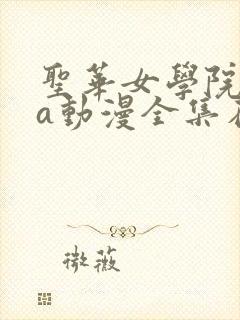 聖華女學院
a動漫全集
微薇